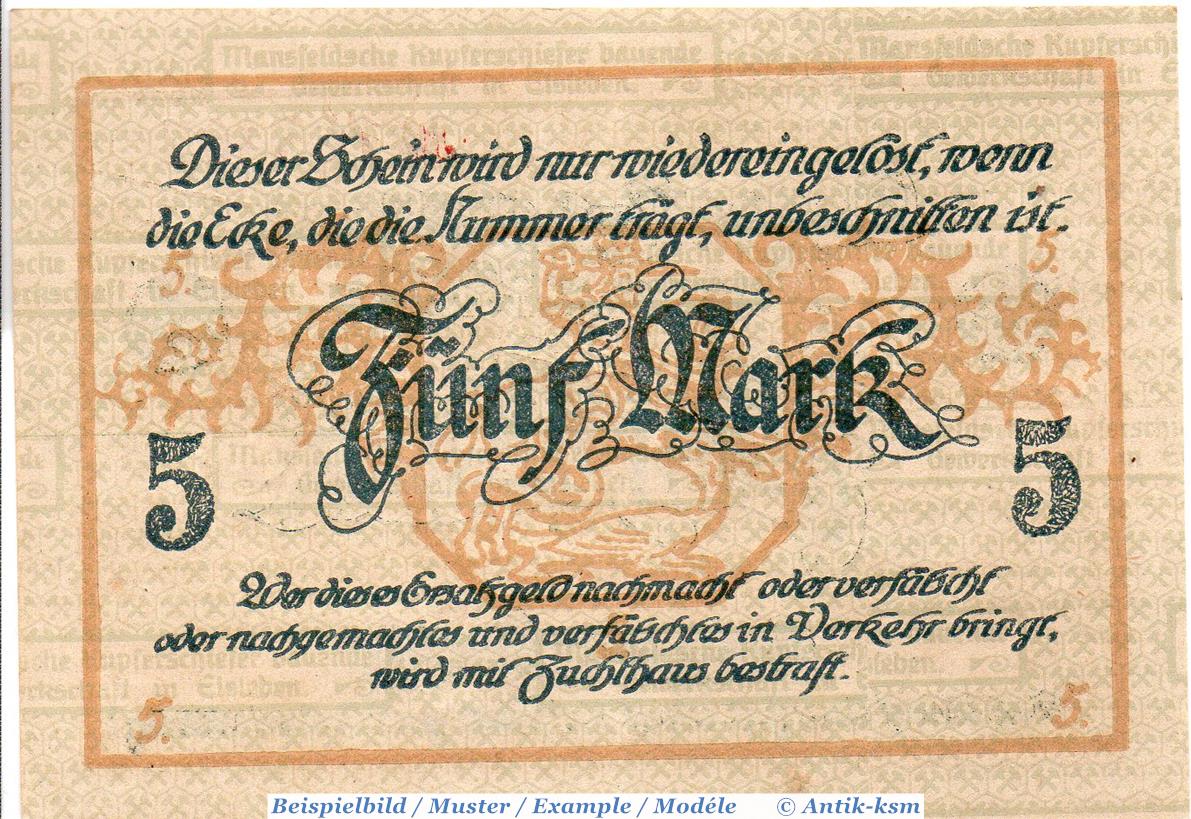 Mansfeldsche Kupferschiefer bauende
Mansfeldsche Kupferschi
Gewerkschaft in Eisleben
Gewerkschaft in E
Dieser Schein wird nur wiedereingelöst, wenn
die Ecke, die die Nummer trägt, unbeschnitten ist.
5. 5.
Fünf Mark
5 5
Wer dieses Ersatzgeld nachmacht oder verfälscht
oder nachgemachtes und verfälschtes in Verkehr bringt,
wird mit Zuchthaus bestraft.
5. 5.
Beispielbild / Muster / Example / Modéle © Antik-ksm